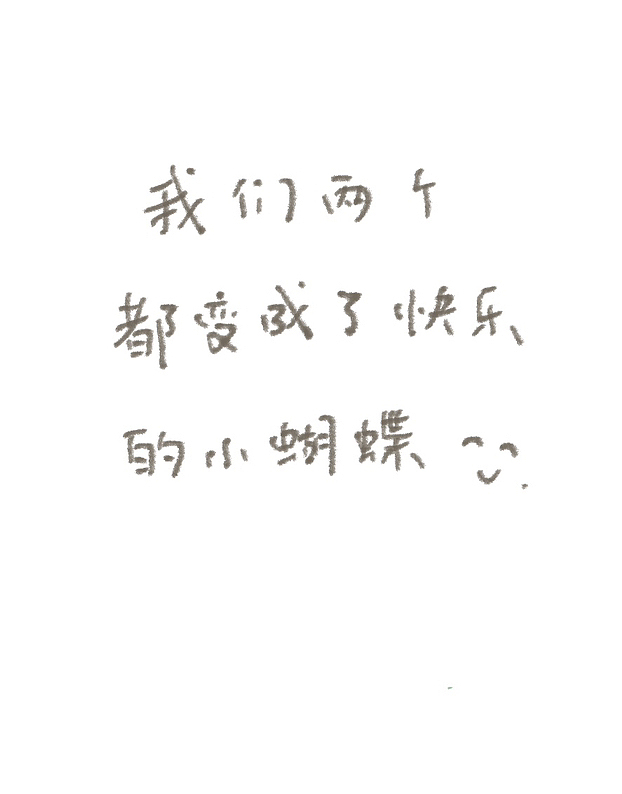 我们两个
都变成了快乐
的小蝴蝶